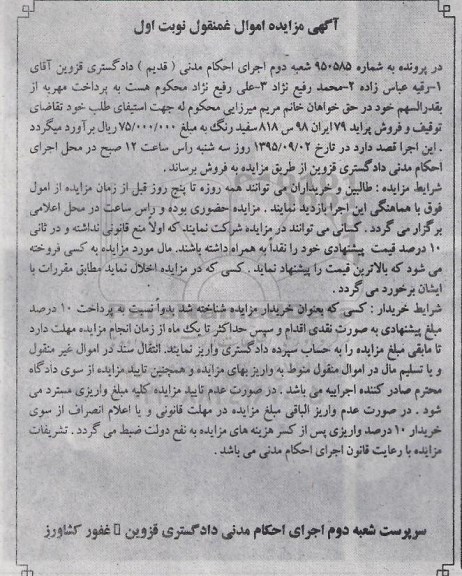 آگهی مزایده اموال غمنقول نوبت اول
در پرونده به شماره ۹۵۰۵۸۵ شعبه دوم اجرای احکام مدنی ( قدیم ) دادگستری قزوین آقای
۱-رقیه عباس زاده ۲-محمد رفیع نژاد ۳-علی رفیع نژاد محکوم هست به پرداخت مهریه از
بقدرالسهم خود در حق خواهان خانم مریم میرزایی محکوم له جهت استیفای طلب خود تقاضای
توقیف و فروش پراید ۷۹ایران ۹۸ س ۸۱۸ سفید رنگ به مبلغ ۷۵/۰۰۰/۰۰۰ ریال برآورد میگردد
. این اجرا قصد دارد در تاریخ ۱۳۹۵/۰۹/۰۲ روز سه شنبه راس ساعت ۱۲ صبح در محل اجرای
احکام مدنی دادگستری قزوین از طریق مزایده به فروش برساند .
شرایط مزایده : طالبین و خریداران می توانند همه روزه تا پنج روز قبل از زمان مزایده از امول
فوق با هماهنگی این اجرا بازدید نمایند . مزایده حضوری بوده و راس ساعت در محل اعلامی
برگزار می گردد . کسانی می توانند در مزایده شرکت نمایند که اولاً منع قانونی نداشته و در ثانی
۱۰ درصد قیمت پیشنهادی خود را نقداً به همراه داشته باشند. مال مورد مزایده به کسی فروخته
می شود که بالاترین قیمت را پیشنهاد نماید . کسی که در مزایده اخلال نماید مطابق مقررات با
ایشان برخورد می گردد .
شرایط خریدار : کسی که بعنوان خریدار مزایده شناخته شد بدواً نسبت به پرداخت ۱۰ درصد
مبلغ پیشنهادی به صورت نقدی اقدام و سپس حداکثر تا یک ماه از زمان انجام مزایده مهلت دارد
تا مابقی مبلغ مزایده را به حساب سپرده دادگستری واریز نمایند. انتقال سند در اموال غیر منقول
و یا تسلیم مال در اموال منقول منوط به واریز بهای مزایده و همچنین تایید مزایده از سوی دادگاه
محترم صادر کننده اجراییه می باشد . در صورت عدم تایید مزایده کلیه مبلغ واریزی مسترد می
شود . در صورت عدم واریز الباقی مبلغ مزایده در مهلت قانونی و یا اعلام انصراف از سوی
خریدار ۱۰ درصد واریزی پس از کسر هزینه های مزایده به نفع دولت ضبط می گردد . تشریفات
مزایده با رعایت قانون اجرای احکام مدنی می باشد .
سرپرست شعبه دوم اجرای احکام مدنی دادگستری قزوین ▯ غفور کشاورز